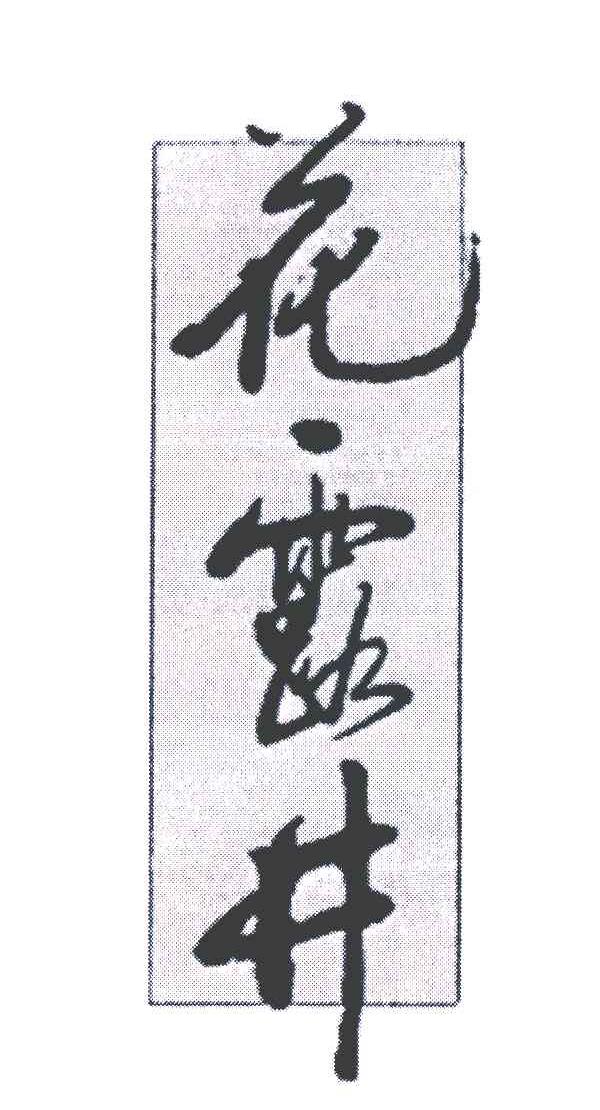 花·露井